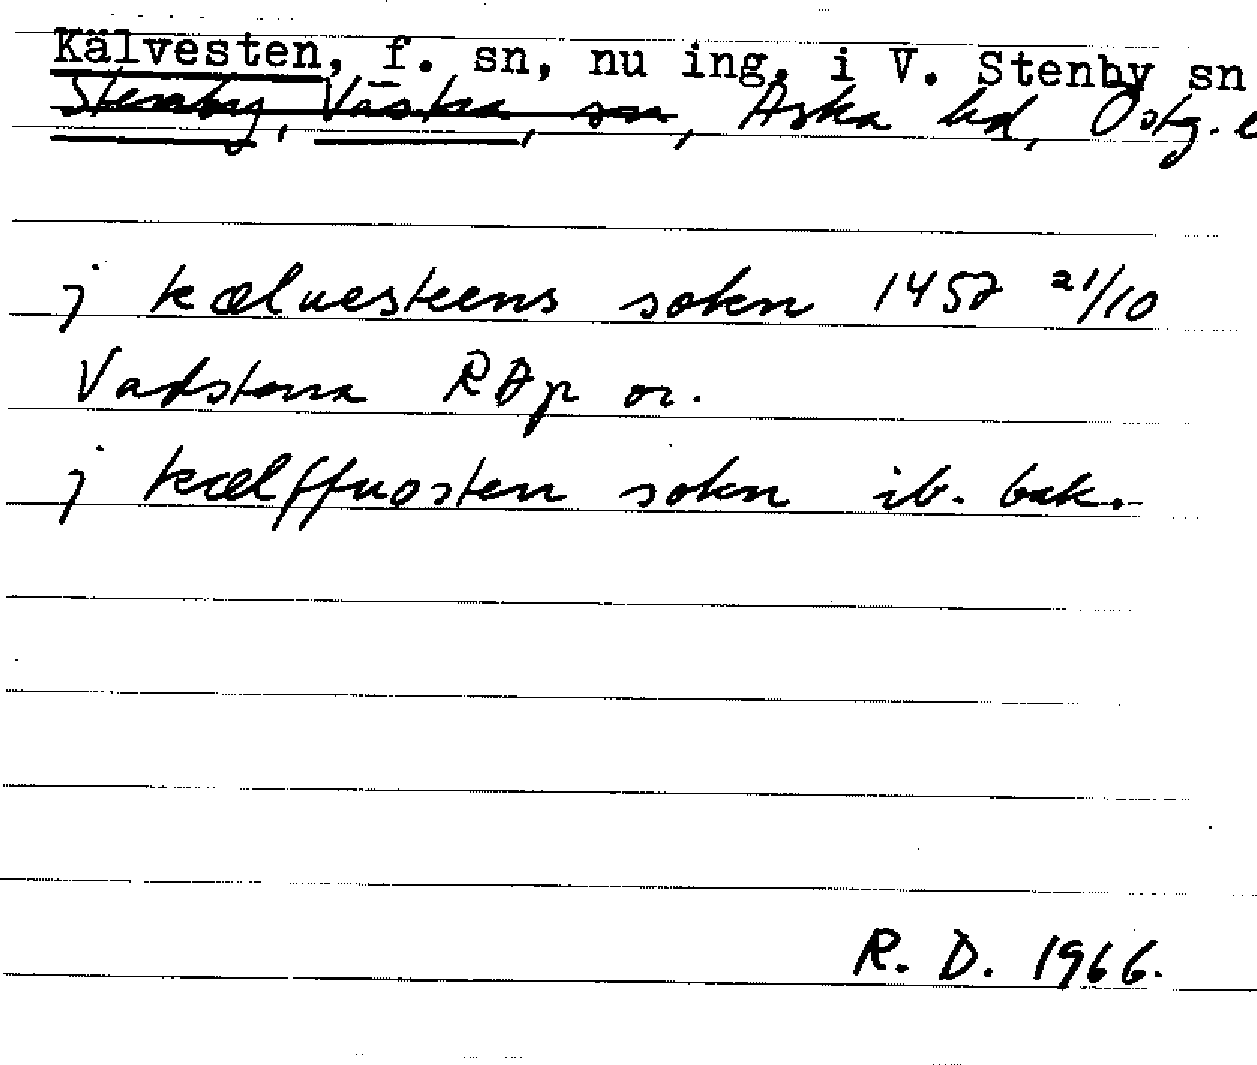 Kälvesten, f. sn, nu ing. i V. Stenby sn
Stenby, Västra, sn, Aska hd, Östg.
j kæluesteens sokn 21/10
Vadstena RAp or.
j kælffuosten sokn ib. bak.
R. D. 1966.